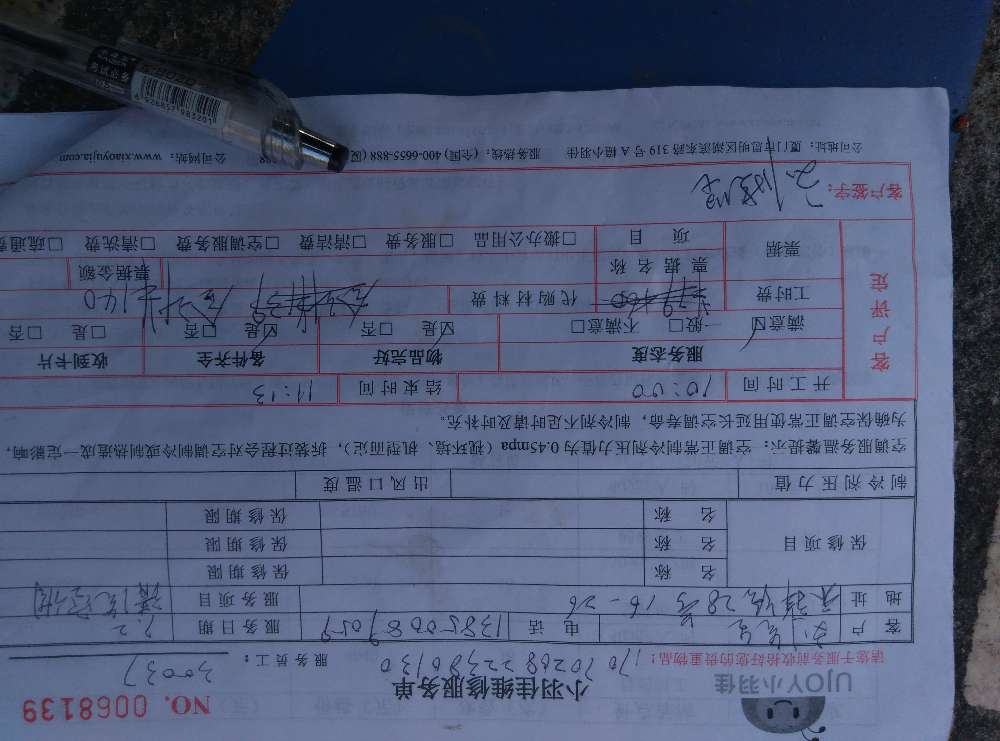 UJOY小羽佳
小羽佳维修服务单
NO. 0068139
请您于服务前收拾好您的贵重物品！
1701026822386130
服务员工： 30037
客 户 刘先生 电 话 13850089059 服务日期 7.2
地 址 28号 16-26 服务项目 清洗空调
保修项目
名 称 保修期限
名 称 保修期限
名 称 保修期限
制冷剂压力值 出风口温度
空调服务温馨提示：空调正常制冷剂压力值为0.45mpa（视环境、机型而定），拆装过程会对空调制冷或制热造成一定影响，
为确保空调正常使用延长空调寿命，制冷剂不足时请及时补充。
客户评定
开工时间 10:00 结束时间 11:13
服务态度 物品完好 备件齐全 收到卡片
满意☑ 一般□ 不满意□ ☑是 □否 ☑是 □否 □是 □否
工时费 代购材料费 140
票据 票据名称 票据金额
项 目 □搬办公用品 □服务费 □清洁费 □空调服务费 □清洗费 □疏通费
客户签字：
公司地址：厦门市思明区湖滨东路319号A幢小羽佳 服务热线：(全国) 400-6655-888 (厦 公司网站：www.xiaoyujia.com
6 926857 983201